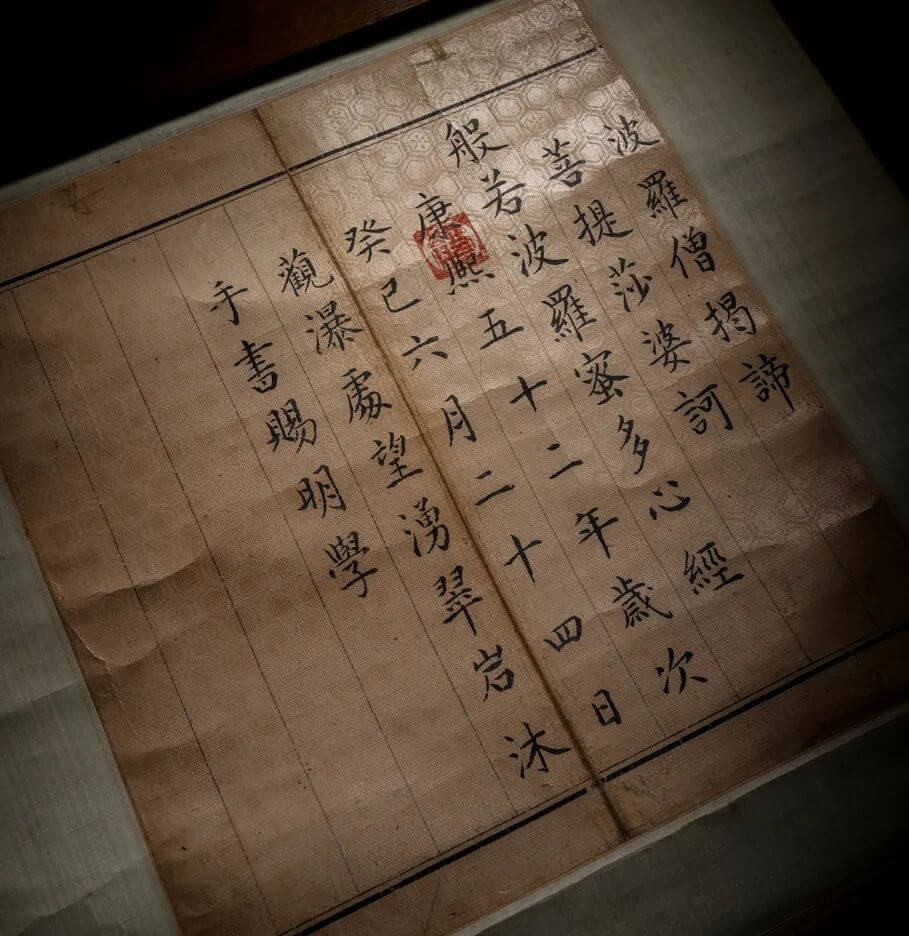 波羅僧揭諦
菩提莎婆訶
般若波羅蜜多心經
康熙五十二年歲次
癸巳六月二十四日
觀瀑處望湧翠岩沐
手書賜明學